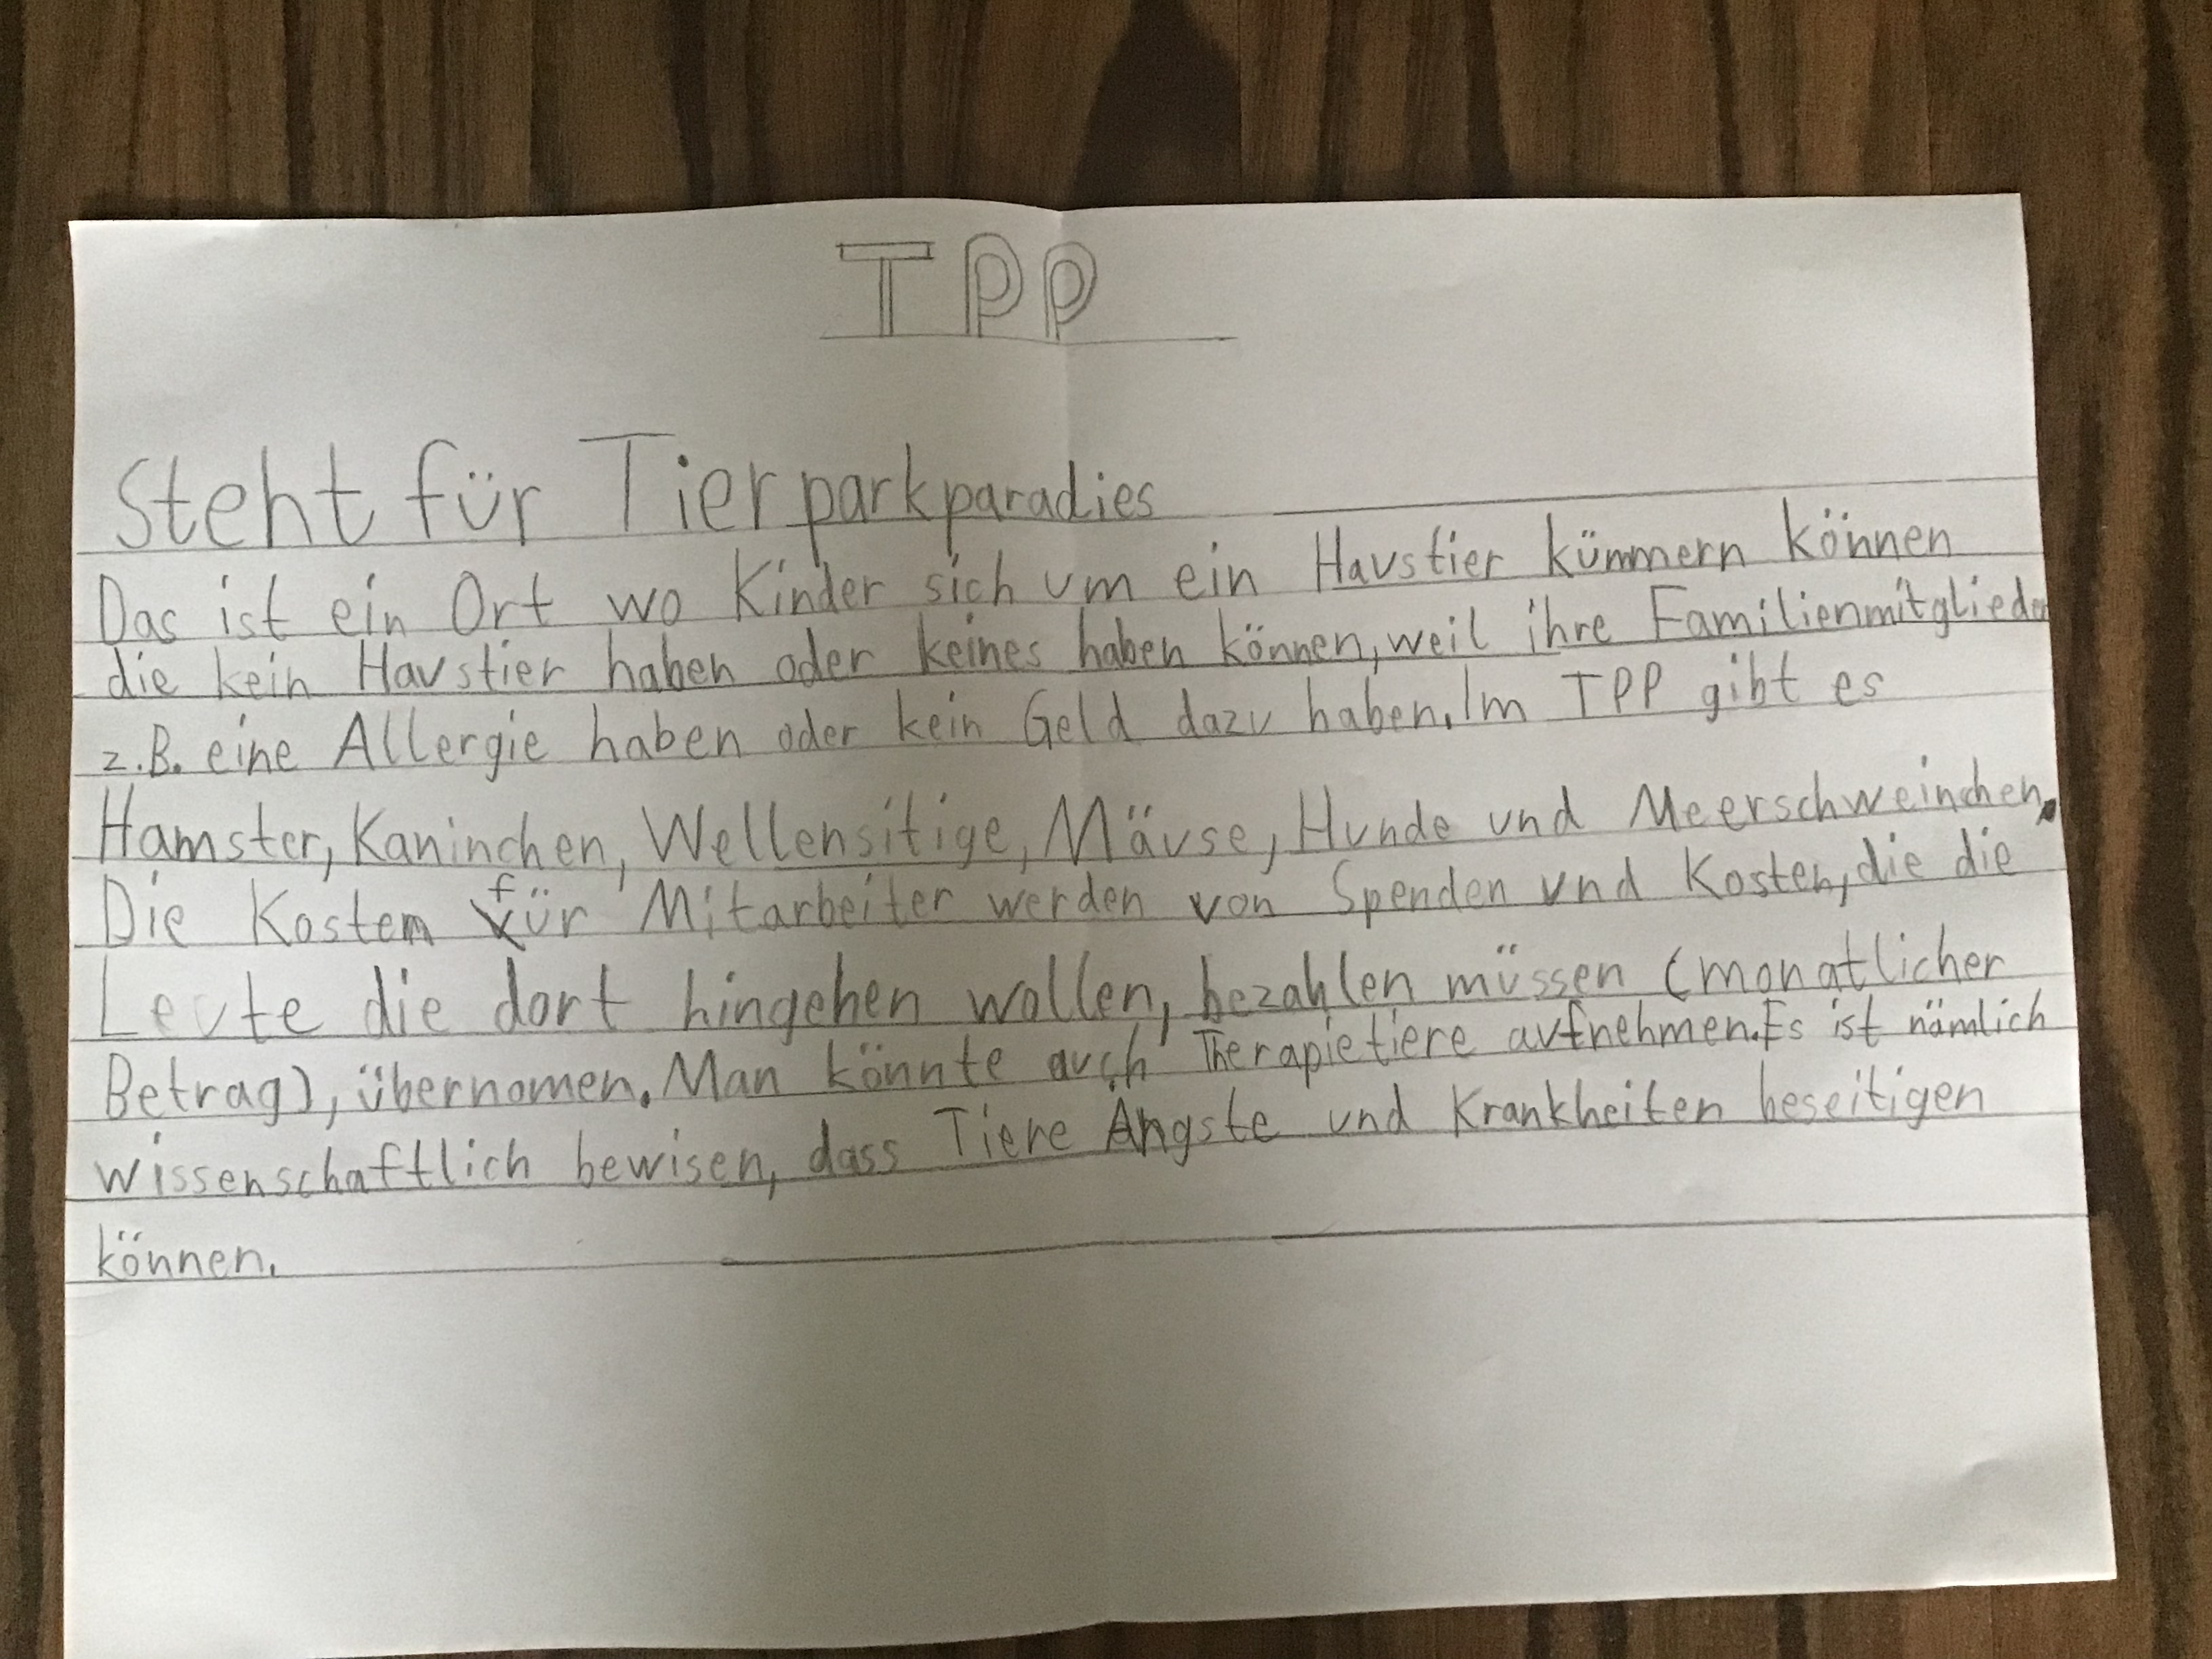 TPP
Steht für Tierparkparadies
Das ist ein Ort wo Kinder sich um ein Haustier kümmern können
die kein Haustier haben oder keines haben können, weil ihre Familienmitglieder
z.B. eine Allergie haben oder kein Geld dazu haben. Im TPP gibt es
Hamster, Kaninchen, Wellensitige, Mäuse, Hunde und Meerschweinchen.
Die Kosten für Mitarbeiter werden von Spenden und Kosten, die die
Leute die dort hingehen wollen, bezahlen müssen (monatlicher
Betrag), übernomen. Man könnte auch Therapietiere aufnehmen. Es ist nämlich
wissenschaftlich bewisen, dass Tiere Ängste und Krankheiten beseitigen
können.